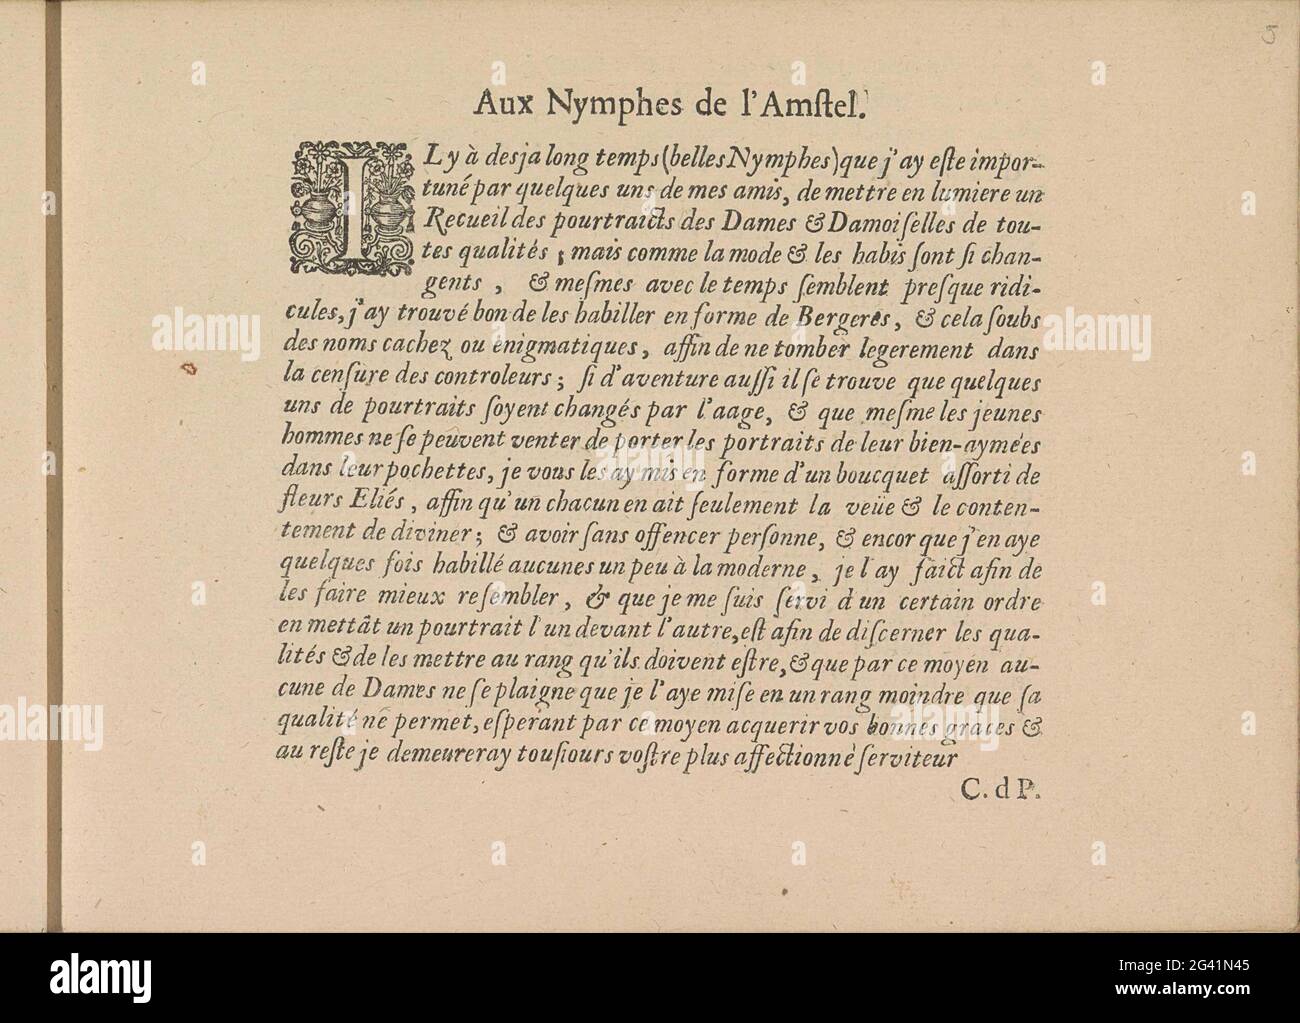 5
Aux Nymphes de l'Amſtel.
IL y à desja long temps (belles Nymphes) que j'ay eſte impor-
tuné par quelques uns de mes amis, de mettre en lumiere un
Recueil des pourtraicts des Dames & Damoiſelles de tou-
tes qualités, mais comme la mode & les habis ſont ſi chan-
gents, & meſmes avec le temps ſemblent preſque ridi-
cules, j'ay trouvé bon de les habiller en forme de Bergeres, & cela ſoubs
des noms cachez ou enigmatiques, affin de ne tomber legerement dans
la cenſure des controleurs; ſi d'aventure auſſi il ſe trouve que quelques
uns de pourtraits ſoyent changés par l'aage, & que meſme les jeunes
hommes ne ſe peuvent venter de porter les portraits de leur bien-aymées
dans leur pochettes, je vous les ay mis en forme d'un boucquet aſſorti de
fleurs Eliés, affin qu'un chacun en ait ſeulement la veüe & le conten-
tement de diviner; & avoir ſans offencer perſonne, & encor que j'en aye
quelques fois habillé aucunes un peu à la moderne, je l'ay faict afin de
les faire mieux reſembler, & que je me ſuis ſervi d'un certain ordre
en mettāt un pourtrait l'un devant l'autre, eſt afin de diſcerner les qua-
lités & de les mettre au rang qu'ils doivent eſtre, & que par ce moyen au-
cune de Dames ne ſe plaigne que je l'aye miſe en un rang moindre que ſa
qualité ne permet, eſperant par ce moyen acquerir vos bonnes graces &
au reſte je demeureray touſiours voſtre plus affectionné ſerviteur
C. d P.
alamy
Image ID: 2G41N45
www.alamy.com